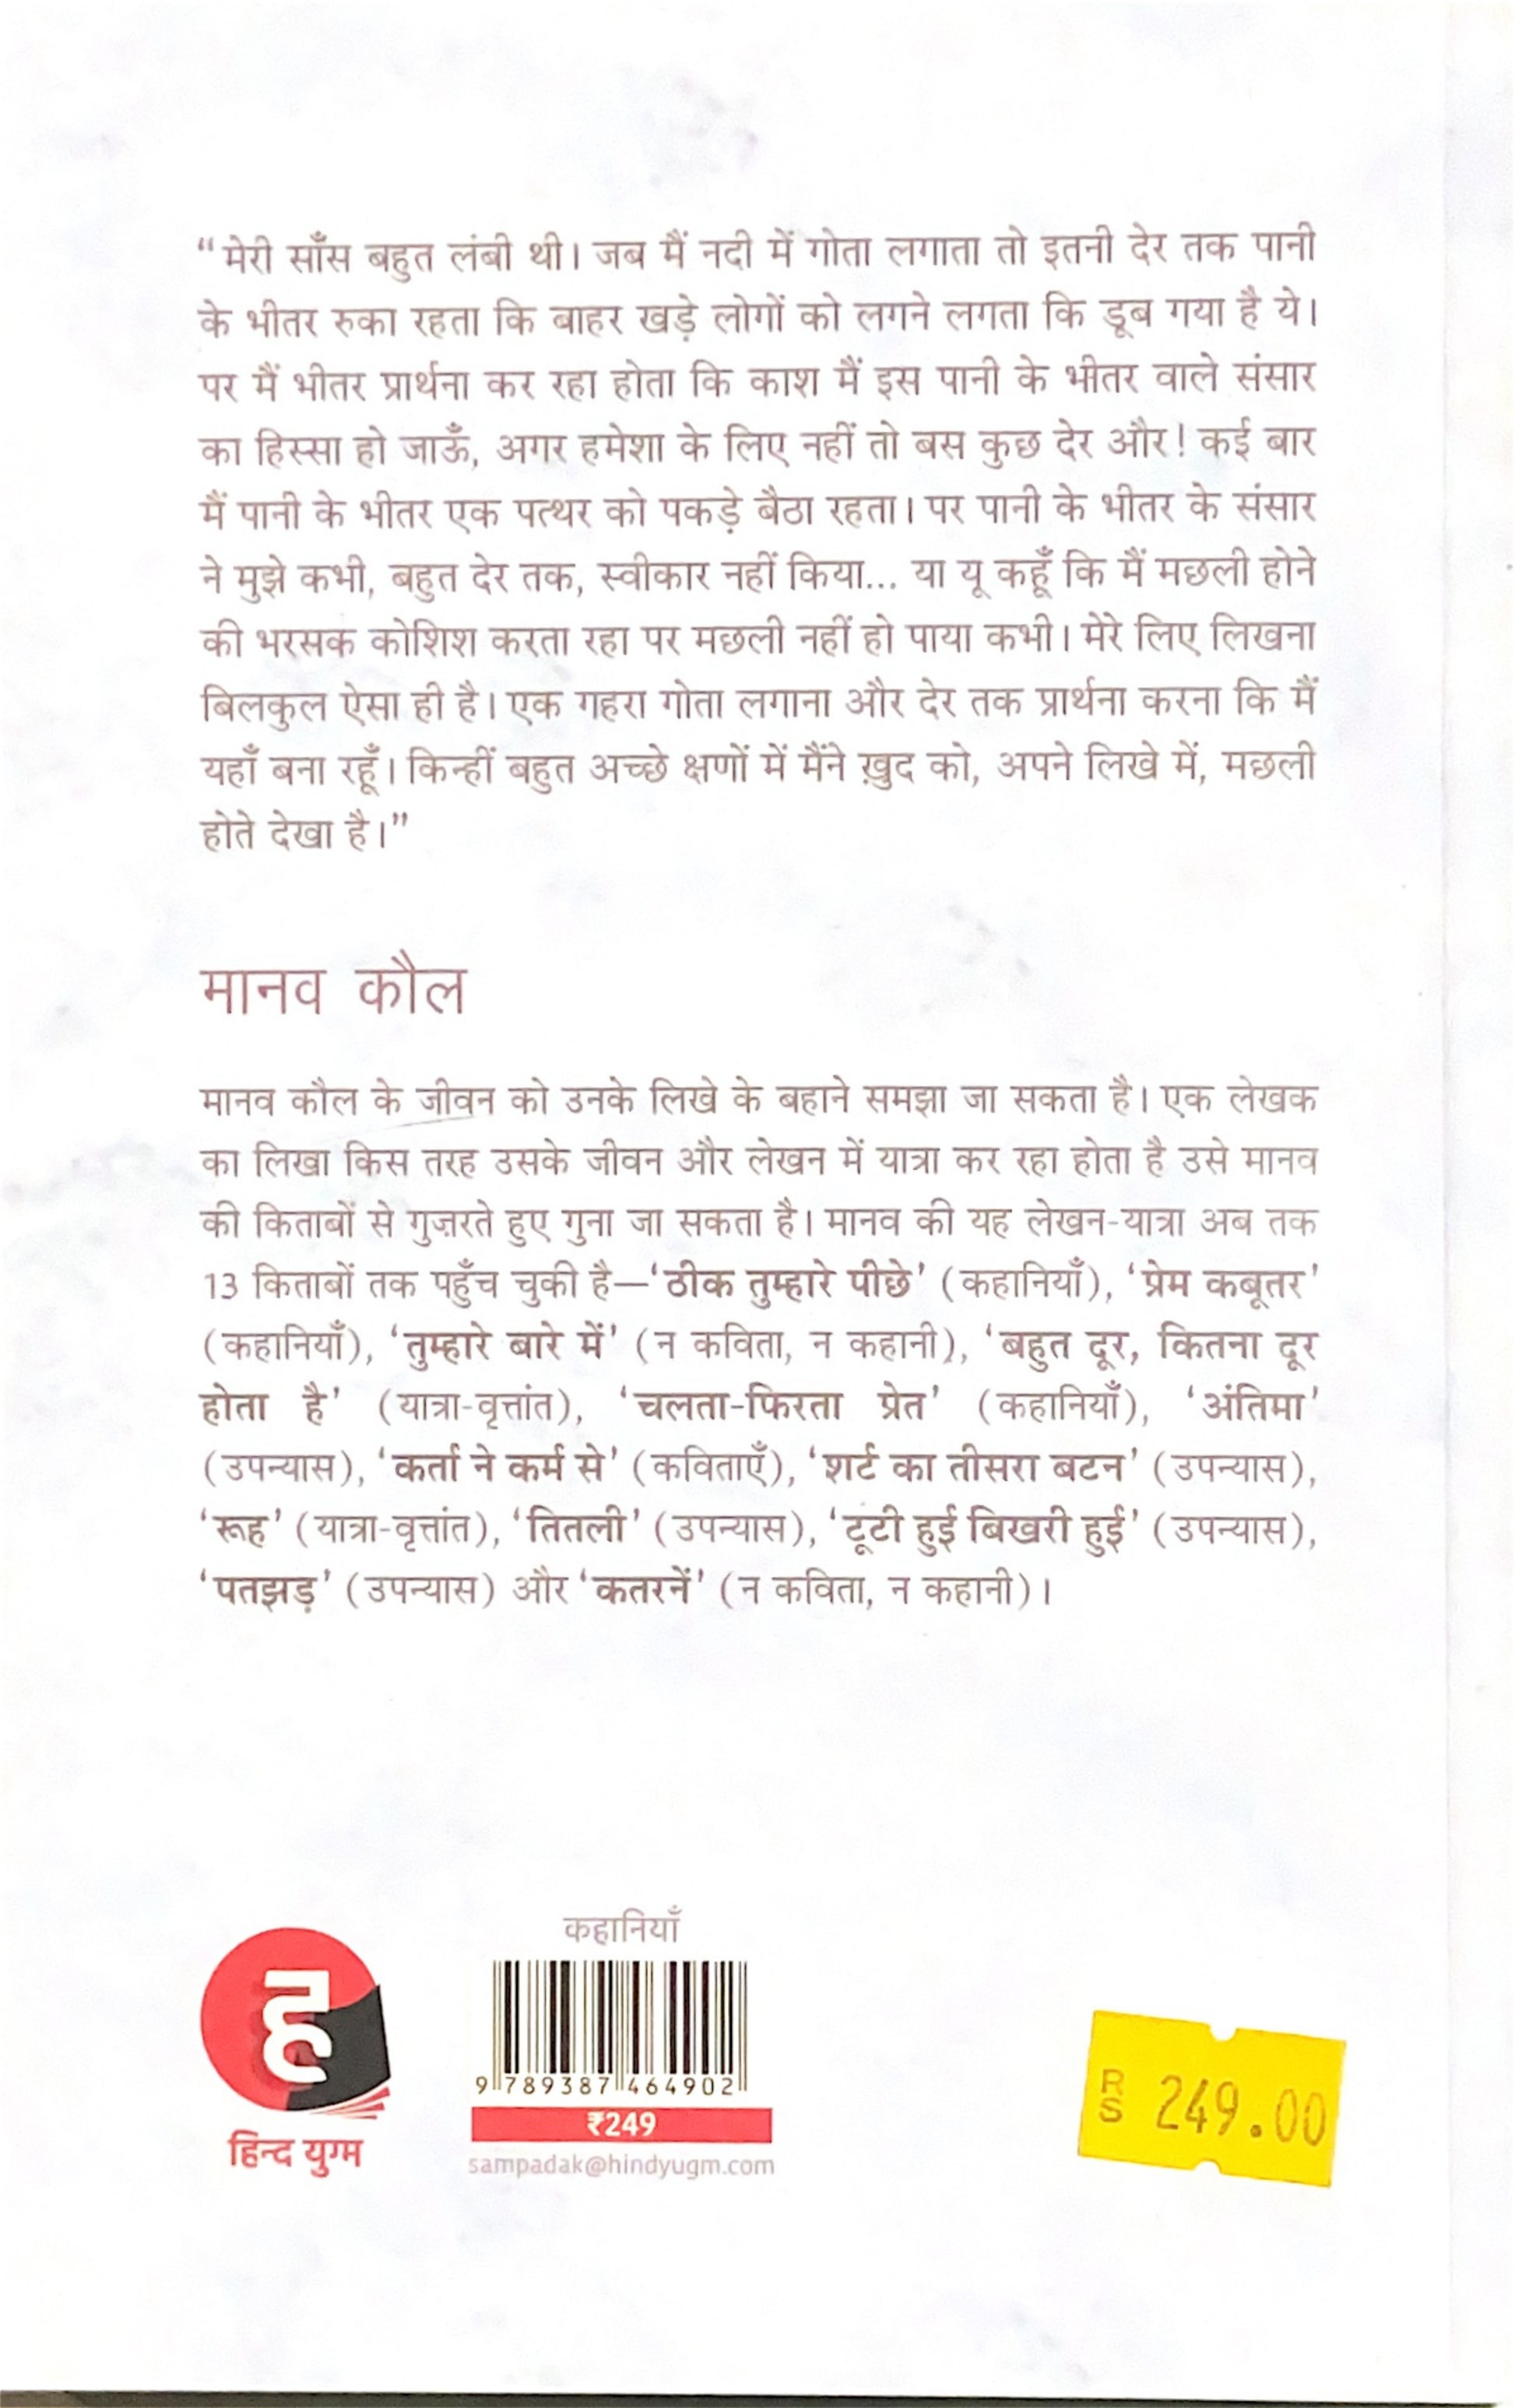 “मेरी साँस बहुत लंबी थी। जब मैं नदी में गोता लगाता तो इतनी देर तक पानी
के भीतर रुका रहता कि बाहर खड़े लोगों को लगने लगता कि डूब गया है ये।
पर मैं भीतर प्रार्थना कर रहा होता कि काश मैं इस पानी के भीतर वाले संसार
का हिस्सा हो जाऊँ, अगर हमेशा के लिए नहीं तो बस कुछ देर और! कई बार
मैं पानी के भीतर एक पत्थर को पकड़े बैठा रहता। पर पानी के भीतर के संसार
ने मुझे कभी, बहुत देर तक, स्वीकार नहीं किया... या यू कहूँ कि मैं मछली होने
की भरसक कोशिश करता रहा पर मछली नहीं हो पाया कभी। मेरे लिए लिखना
बिलकुल ऐसा ही है। एक गहरा गोता लगाना और देर तक प्रार्थना करना कि मैं
यहाँ बना रहूँ। किन्हीं बहुत अच्छे क्षणों में मैंने ख़ुद को, अपने लिखे में, मछली
होते देखा है।”
मानव कौल
मानव कौल के जीवन को उनके लिखे के बहाने समझा जा सकता है। एक लेखक
का लिखा किस तरह उसके जीवन और लेखन में यात्रा कर रहा होता है उसे मानव
की किताबों से गुज़रते हुए गुना जा सकता है। मानव की यह लेखन-यात्रा अब तक
13 किताबों तक पहुँच चुकी है—‘ठीक तुम्हारे पीछे’ (कहानियाँ), ‘प्रेम कबूतर’
(कहानियाँ), ‘तुम्हारे बारे में’ (न कविता, न कहानी), ‘बहुत दूर, कितना दूर
होता है’ (यात्रा-वृत्तांत), ‘चलता-फिरता प्रेत’ (कहानियाँ), ‘अंतिमा’
(उपन्यास), ‘कर्ता ने कर्म से’ (कविताएँ), ‘शर्ट का तीसरा बटन’ (उपन्यास),
‘रूह’ (यात्रा-वृत्तांत), ‘तितली’ (उपन्यास), ‘टूटी हुई बिखरी हुई’ (उपन्यास),
‘पतझड़’ (उपन्यास) और ‘कतरनें’ (न कविता, न कहानी)।
कहानियाँ
ह
हिन्द युग्म
9 789387 464902
₹249
sampadak@hindyugm.com
RS 249.00